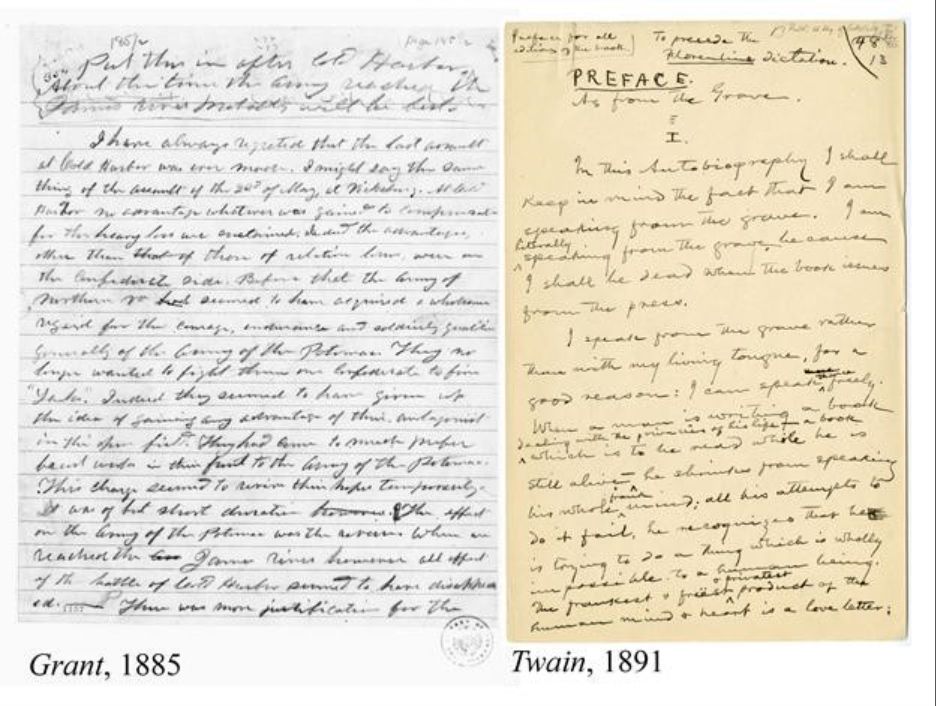 185/2
Put this in after Cold Harbor,
About the time the Army reaches the
James river
I have always regretted that the last assault
at Cold Harbor was ever made. I might say the same
thing of the assault of the 22d of May, at Vicksburg. At Cold
Harbor no advantage whatever was gained to compensate
for the heavy loss we sustained. Indeed the advantages,
other than that of those of relative losses, were on
the Confederate side. Before that the Army of
Northern Va had seemed to have acquired a wholesome
regard for the courage, endurance and soldierly qualities
generally of the Army of the Potomac. They no
longer wanted to fight them one Confederate to five
"Yanks." Indeed they seemed to have given up
the idea of gaining any advantage of their antagonist
in the open field. They had come to much prefer
breast works in their front to the Army of the Potomac.
This charge seemed to revive their hopes temporarily.
It was of but short duration however. The effect
on the Army of the Potomac was the reverse. When we
reached the James river however all effect
of the battle of Cold Harbor seemed to have disappear
ed. There was more justification for the
Grant, 1885
Preface for all
editions of the book.
To precede the
Florentine dictation.
48
13
PREFACE.
As from the Grave.
I.
In this Autobiography I shall
keep in mind the fact that I am
speaking from the grave. I am
literally
speaking from the grave, because
I shall be dead when the book issues
from the press.
I speak from the grave rather
than with my living tongue, for a
good reason: I can speak freely.
When a man is writing a book
dealing with the privacies of his life—a book
which is to be read while he is
still alive—he shrinks from speaking
his whole frank mind; all his attempts to
do it fail, he recognizes that he
is trying to do a thing which is wholly
impossible to a human being.
The frankest & freest & privatest product of the
human mind & heart is a love letter;
Twain, 1891